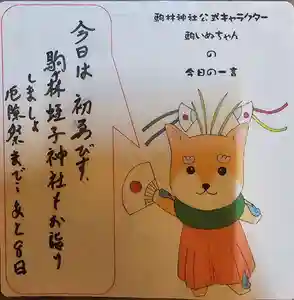 駒林神社公式キャラクター
駒いぬちゃん
の
今日の一言
今日は初寅です。
駒林蛭子神社もお詣り
しましょ
厄除祭まであと8日